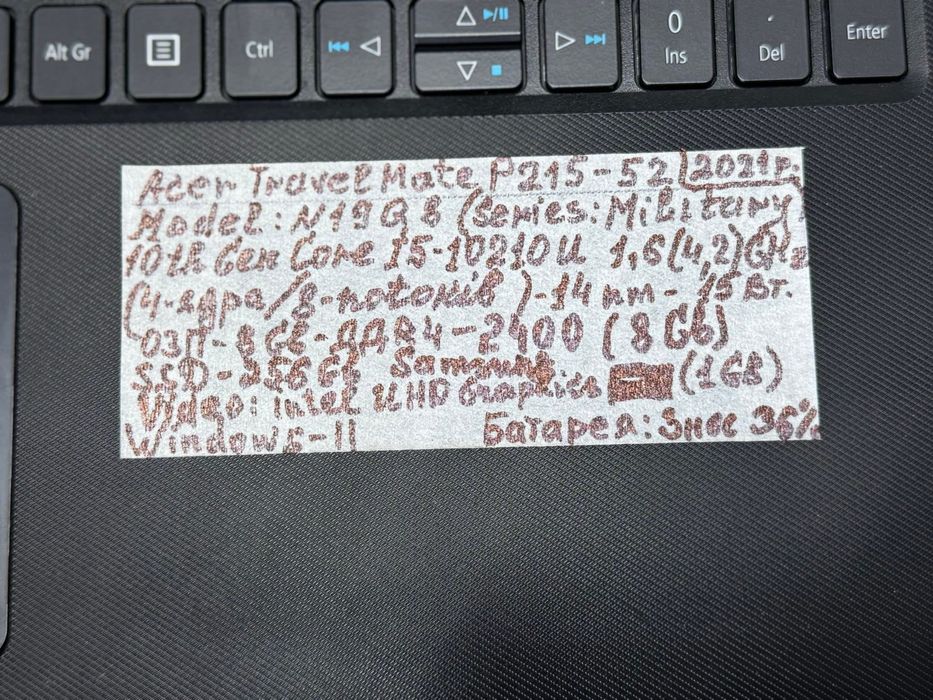 Alt Gr Ctrl 0 Ins . Del Enter
Acer TravelMate P215-52 2021р.
Model: N19Q8 (Series: Military)
10th Gen Core I5-10210U 1,6(4,2)GHz
(4-ядра/8-потоків)-14 nm-15Вт.
ОЗП-8GB-ДДR4-2400 (8Gb)
SSD-256Gb Samsung
Wideo: intel UHD Graphics (1GB)
Windows-11 Батарея: Знос 36%